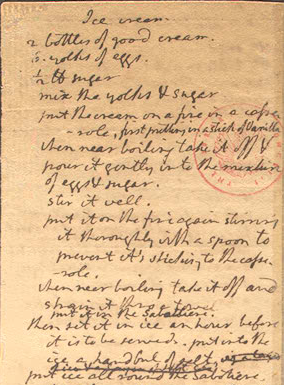 Ice cream.
2 bottles of good cream.
6. yolks of eggs.
½ ℔ sugar
mix the yolks & sugar
put the cream on a fire in a casse
-role, first putting in a stick of Vanilla
when near boiling take it off &
pour it gently into the mixture
of eggs & sugar.
stir it well.
put it on the fire again stirring
it thoroughly with a spoon to
prevent it's sticking to the casse-
-role.
when near boiling take it off and
strain it thro' a towel
put it in the Sabottiere.
then set it in ice an hour before
it is to be served. put into the
ice a handful of salt.
put ice all round the Sabotiere